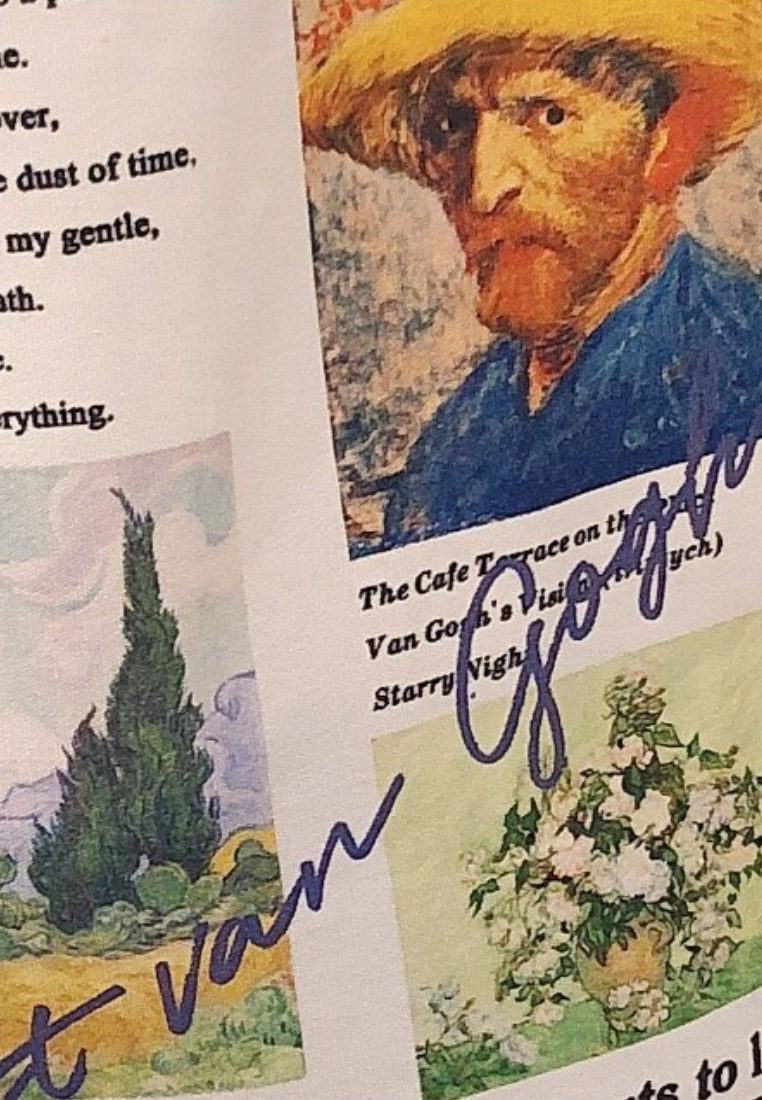 e.
over,
dust of time,
my gentle,
ath.
e.
erything.
The Cafe Terrace on the
Van Gogh's Vision
Starry Night
t van Gogh
ts to l